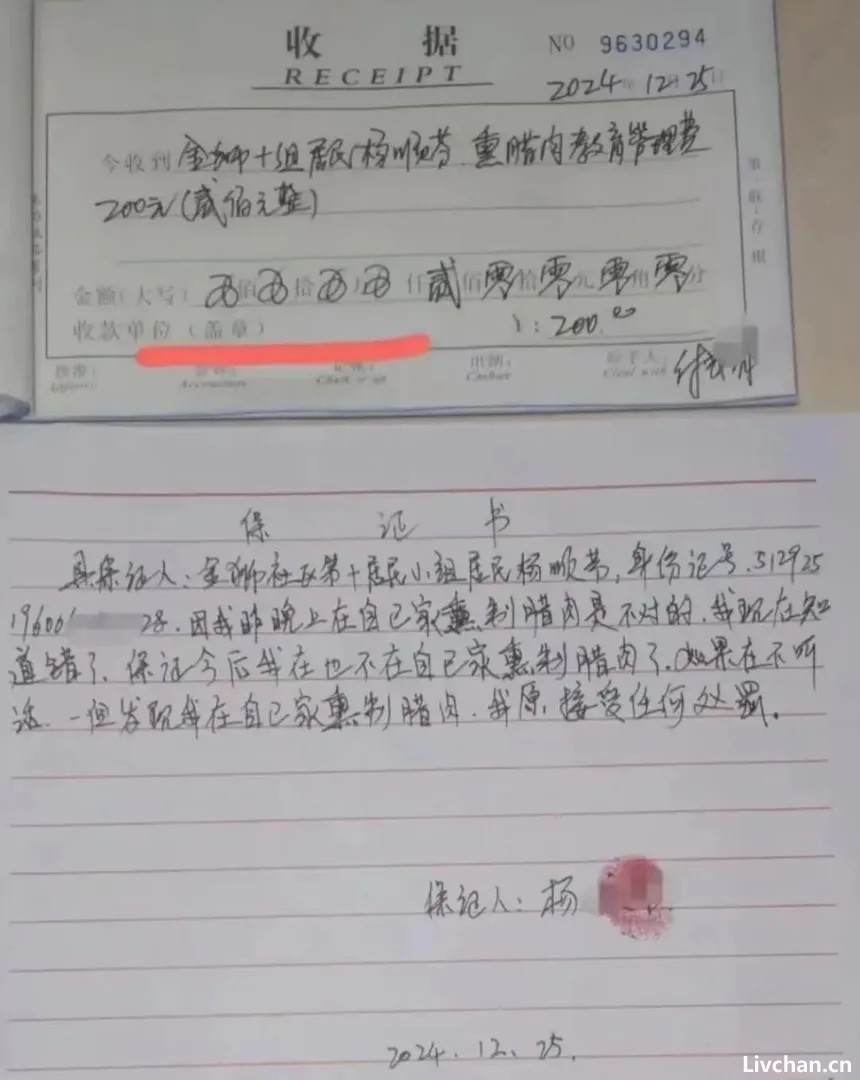 收 据
NO 9630294
RECEIPT
2024年12月25日
今收到 金狮十组居民杨顺芳.熏腊肉教育管理费
200元(贰佰元整)
金额(大写) 佰 拾 仟贰佰零拾零元零角零分
收款单位(盖章) 200.00
第一联:存根
Cashier
Check or up
保 证 书
具保证人:金狮社区第十居民小组居民杨顺芳,身份证号.512925
19600 28.因我昨晚上在自己家熏制腊肉是不对的.我现在知
道错了.保证今后我在也不在自己家熏制腊肉了.如果在不听
话.一但发现我在自己家熏制腊肉.我原接受任何处罚。
保证人:杨
2024.12.25.
Livchan.cn